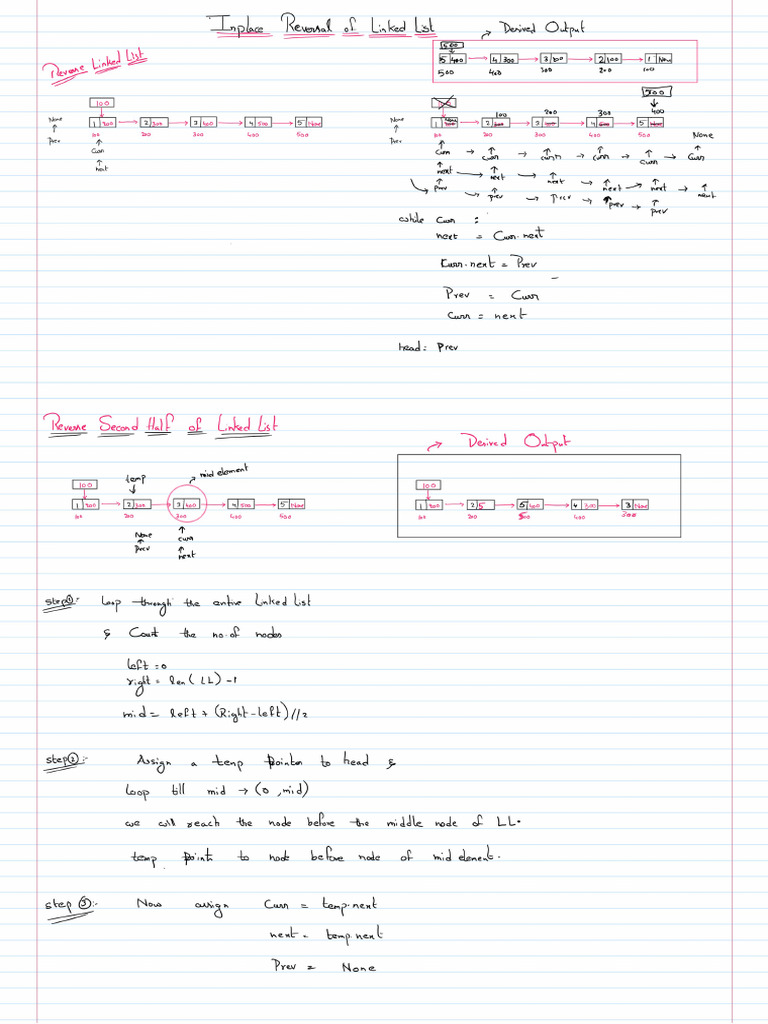 Inplace Reversal of Linked List
Derived Output
500
5 400 4 300 3 200 2 100 1 None
500 400 300 200 100
Reverse Linked List
100
None
Prev
1 200 2 300 3 400 4 500 5 None
100 200 300 400 500
Curr
next
500
100 200 300 400
None
1 2 3 4 5
100 200 300 400 500
None
Prev
Curr Curr Curr Curr Curr Curr
next next next next next next
Prev Prev Prev Prev Prev
while Curr :
next = Curr.next
Curr.next = Prev
Prev = Curr
Curr = next
head = Prev
Reverse Second Half of Linked List
Derived Output
temp
mid element
100
1 200 2 300 3 400 4 500 5 None
100 200 300 400 500
None
Prev
curr
next
100
1 200 2 5 5 400 4 300 3 None
100 200 500 400 300
step①:- Loop through the entire Linked List
& Count the no.of nodes
left = 0
right = len(LL) -1
mid = left + (Right-left)//2
step②:- Assign a temp Pointer to head &
loop till mid → (0, mid)
we will reach the node before the middle node of LL.
temp points to node before node of mid element.
step③:- Now assign Curr = temp.next
next = temp.next
Prev = None